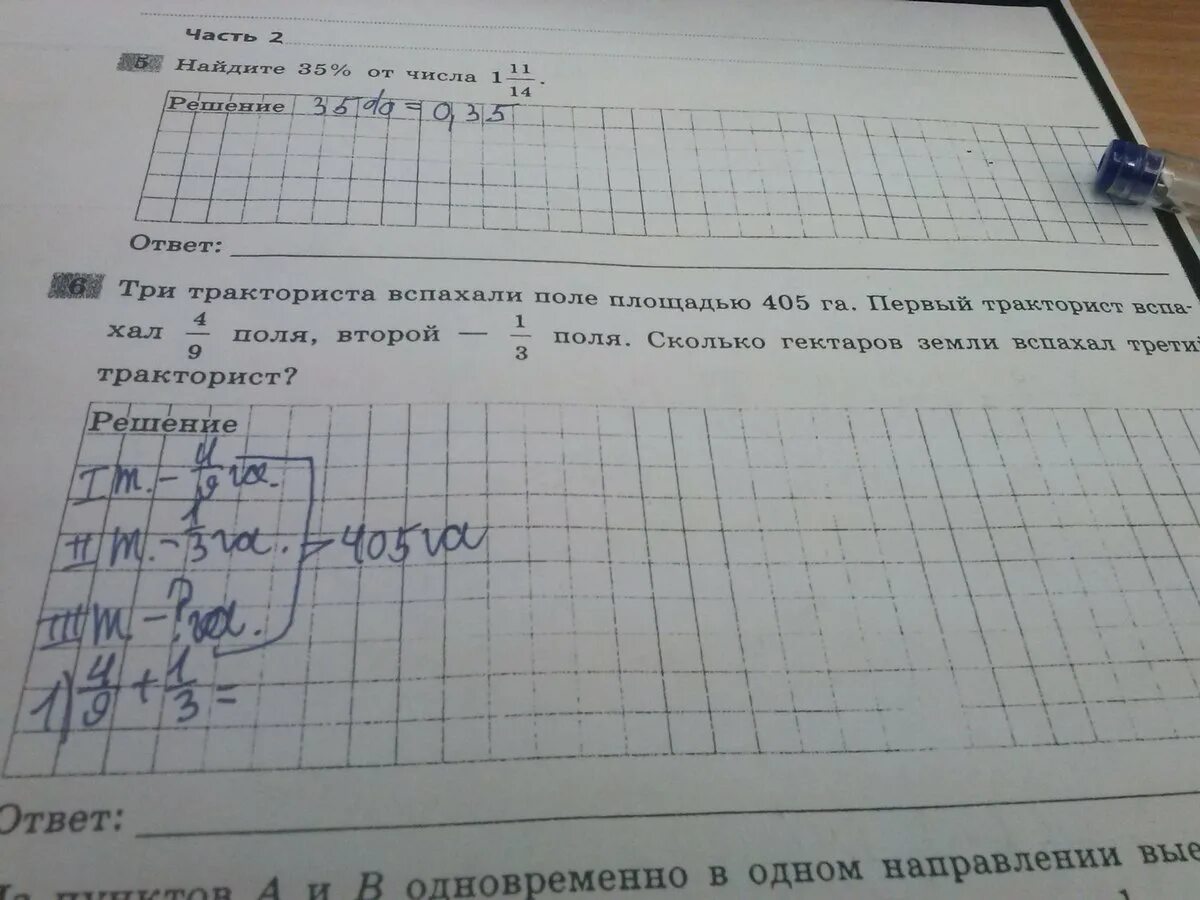 Часть 2
5 Найдите 35% от числа 1 11/14.
Решение 35% = 0,35
Ответ:
6 Три тракториста вспахали поле площадью 405 га. Первый тракторист вспа-
хал 4/9 поля, второй — 1/3 поля. Сколько гектаров земли вспахал трети
тракторист?
Решение
I т. - 4/9 га.
II т. - 1/3 га. 405 га
III т. - ? га.
1) 4/9 + 1/3 =
Ответ:
пунктов A и B одновременно в одном направлении вые